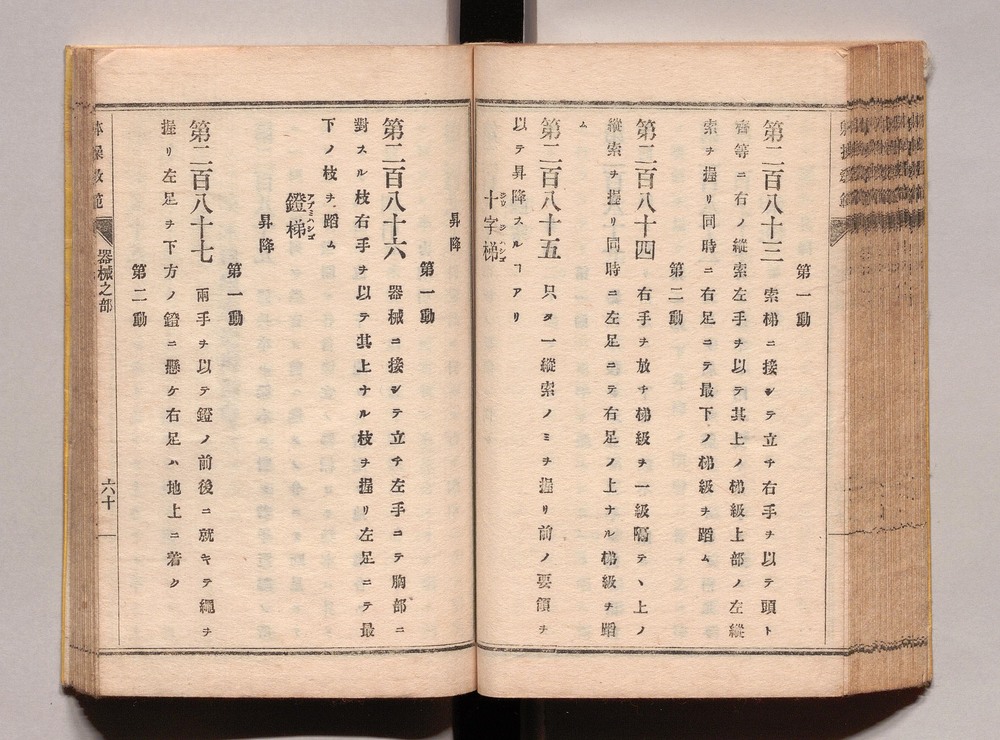 第一動
第二百八十三 索梯ニ接シテ立チ右手ヲ以テ頭ト
齊等ニ右ノ縱索左手ヲ以テ其上ノ梯級上部ノ左縱
索ヲ握リ同時ニ右足ニテ最下ノ梯級ヲ蹈ム
第二動
第二百八十四 右手ヲ放チ梯級ヲ一級隔テヽ上ノ
縱索ヲ握リ同時ニ左足ニテ右足ノ上ナル梯級ヲ蹈
ム
第二百八十五 只タ一縱索ノミヲ握リ前ノ要領ヲ
以テ昇降スルヿアリ
十字梯
昇降
第一動
第二百八十六 器械ニ接シテ立チ左手ニテ胸部ニ
對スル枝右手ヲ以テ其上ナル枝ヲ握リ左足ニテ最
下ノ枝ヲ蹈ム
鐙梯
アブミハシゴ
昇降
第一動
第二百八十七 兩手ヲ以テ鐙ノ前後ニ就キテ繩ヲ
握リ左足ヲ下方ノ鐙ニ懸ケ右足ハ地上ニ着ク
第二動
体操教範
器械之部
六十